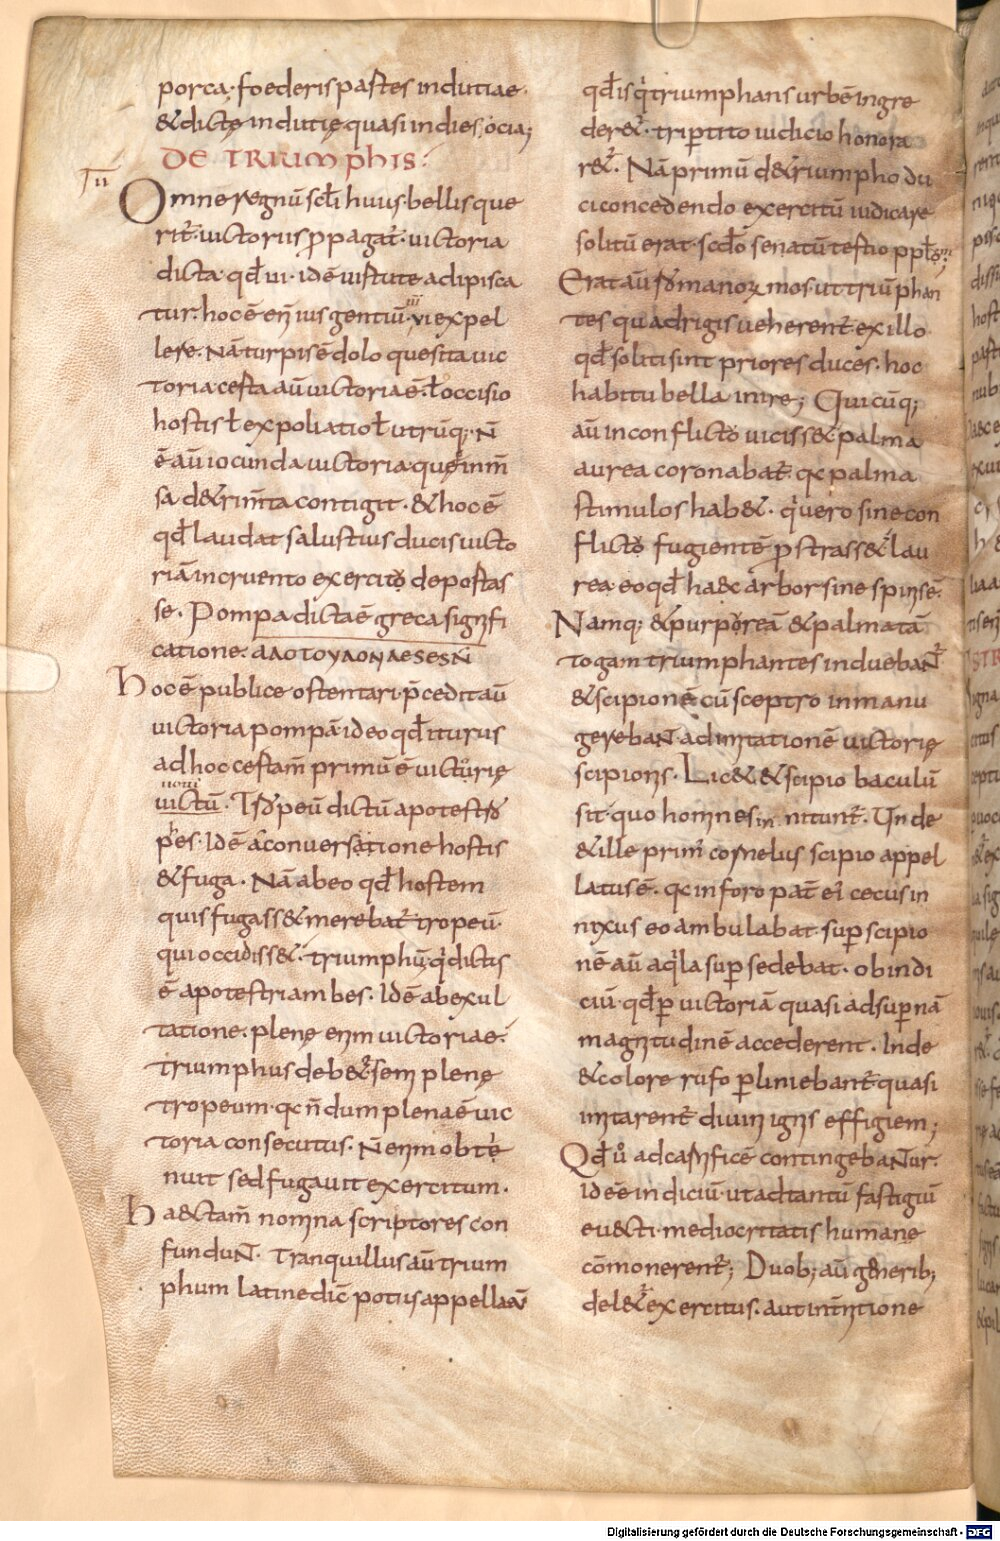 porca; foederis partes indutiae·
&dictę indutię quasi indies ocia;
DE TRIUMPHIS:
II
Omne regnū sc̄li huius· bellis que
rit̄· uictoriis ꝓpagat̄· uictoria
dicta qđ ui· id ē uirtute adipisca
tur· hoc ē eni̅ ius gentiū· ui expel
lere. Nā turpis ē dolo quesita uic
toria certa aū uictoria ē· ł occisio
hostis ł expoliatio ł utrūq;· N̄
ē aū iocunda uictoria quę in in̄m̄
sa detrim̄ta contigit· & hoc ē
qđ laudat salustius duces uicto
riā incruento exercito deportas
se. Pompa dicta ē greca signifi
catione. ΑΠΟΤΟΥΠΟΝΠΕSΕSΝ̄
hoc ē publice ostentari. p̄cedit aū
uictoria pompā· ideo qđ ituris
ad hoc certam̄ primū ē uicturię
uotū
uictū· Tropeū dictū apotestro
pes· Id ē a conuersatione hostis
& fuga· Nā ab eo qđ hostem
quis fugass& merebat̄ tropeū·
qui occidiss&· triumphū· q̇ dictis
ē apotestriambes· Id ē ab exul
tatione· plenę enim uictoriae·
triumphus deb&ur· semi plenę
tropeum· qc n̄dum plena ē uic
toria consecutus· N̄ enim obte
nuit sed fugauit exercitum·
haec tam̄ nomina scriptores con
fundunt̄· Tranquillus aū trium
phum latine dic̄ potius appellatū
qđ is q̇ triumphans urbē ingre
der&ur· tripertito iudicio honora
r&ur· Nā primū de triumpho du
ci concedendo exercitū iudicare
solitū erat· scđo senatū tertio ppłm̄·
Erat aū romanorꝝ mos· ut triūphan
tes quadrigis ueherent̄· ex illo
qđ soliti sint priores duces· hoc
habitu bella inire; Quicūq;
aū in conflicto uiciss& palma
aurea coronabat̄· qc palma
stimulos hab&· q̇ uero sine con
flicto fugientē ꝓstrass& lau
rea· eo qđ haec arbor sine spinis ē·
Namq; & purpoream & palmatā
togam triumphantes induebant̄
& scipionē cū sceptro in manu
gerebant ad imitationē uictorię
scipionis· Lic& & scipio baculū
sit· quo homines innitunt̄· Unde
& ille prim' cornelius scipio appel
latus ē· qc in foro pat̄ ei cecus in
nixus eo ambulabat· sup scipio
nē aū aq̇la sup sedebat· ob indi
ciū· qđ p uictoriā quasi ad supnā
magnitudinē accederent· Inde
& colore rufo pliniebant̄· quasi
imitarent̄ diuini ignis effigiem;
Qđ ů a carnifice contingebantur·
id ē indiciū· ut ad tantū fastigiū
euecti· mediocritatis humanę
cōmonerent̄; Duob; aū generib;
del&ur exercitus· aut internitione
Digitalisierung gefördert durch die Deutsche Forschungsgemeinschaft - DFG